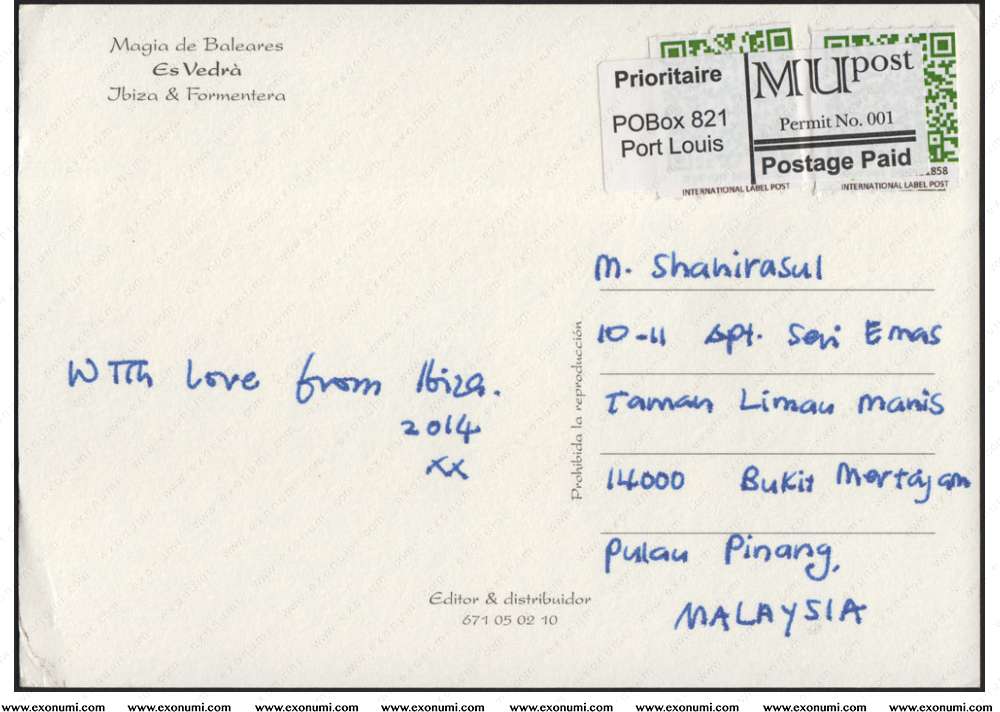 Magia de Baleares
Es Vedrà
Ibiza & Formentera
Prioritaire
POBox 821
Port Louis
MUpost
Permit No. 001
Postage Paid
858
INTERNATIONAL LABEL POST
INTERNATIONAL LABEL POST
M. Shahirasul
10-11 Apt. Seri Emas
Taman Limau Manis
14000 Bukit Mertajam
Pulau Pinang,
MALAYSIA
With love from Ibiza.
2014
xx
Prohibida la reproducción
Editor & distribuidor
671 05 02 10
www.exonumi.com www.exonumi.com www.exonumi.com www.exonumi.com www.exonumi.com www.exonumi.com www.exonumi.com www.exonumi.com